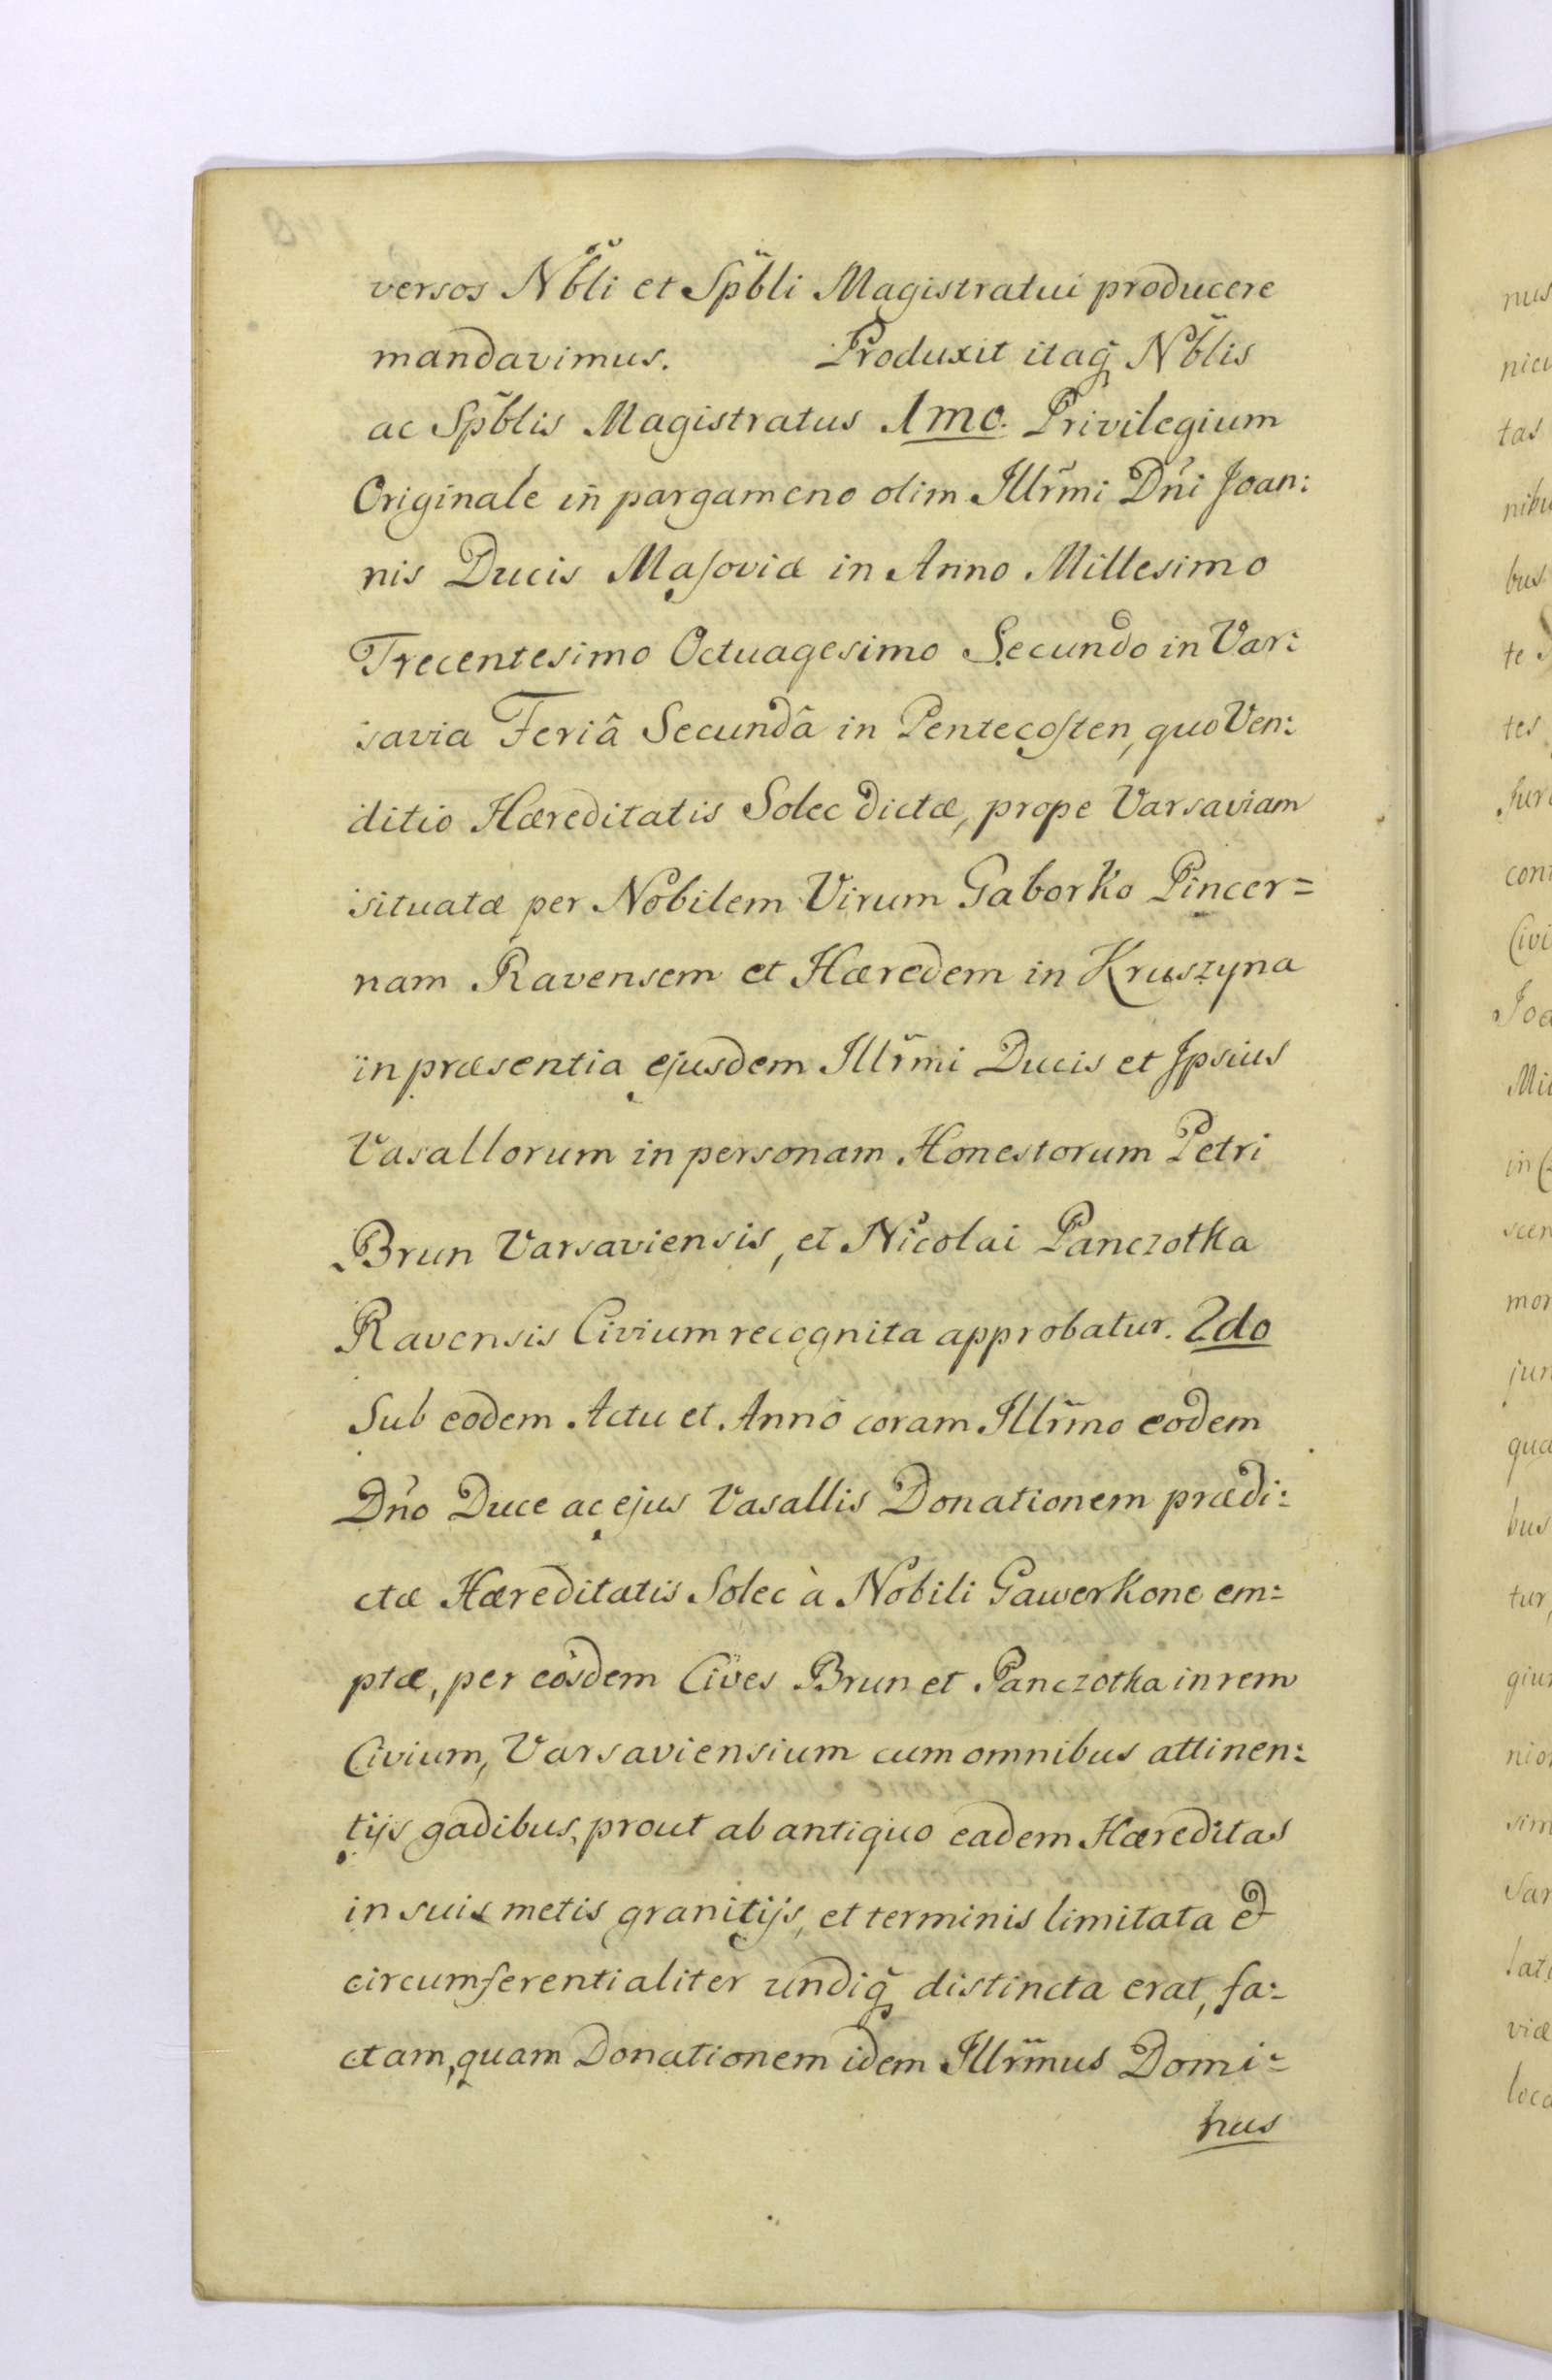 versos Nb̃li et Spb̃li Magistratui producere
mandavimus. Produxit itaq̃ Nb̃lis
ac Spb̃lis Magistratus 1mo. Privilegium
Originale in pargameno olim Illr̃mi Dñi Joan:
nis Ducis Maſoviæ in Anno Millesimo
Trecentesimo Octuagesimo Secundo in Var:
savia Feriâ Secundâ in Pentecoſten, quo Ven:
ditio Hæreditatis Solec dictæ, prope Varsaviam
situatæ per Nobilem Virum Gaborko Pincer=
nam Ravensem et Hæredem in Kruszyna
in præsentia ejusdem Illr̃mi Ducis et Ipsius
Vasallorum in personam Honestorum Petri
Brun Varsaviensis, et Nicolai Panczotka
Ravensis Civium recognita approbatur. 2do
Sub eodem Actu et Anno coram Illr̃mo eodem
Dño Duce ac ejus Vasallis Donationem prædi:
ctæ Hæreditatis Solec à Nobili Gawerkone em:
ptæ, per eosdem Cives Brun et Panczotka in rem
Civium, Varsaviensium cum omnibus attinen:
tijs gadibus, prout ab antiquo eadem Hæreditas
in suis metis granitijs, et terminis limitata et
circumferentialiter undiq̃ distincta erat, fa:
ctam, quam Donationem idem Illr̃mus Domi:
nus
nus
tas
bus
te
tes
con
Civi
Joa
mor
jun
qua
bus
tur,
giu
nio
sim
Sar
viæ
loca